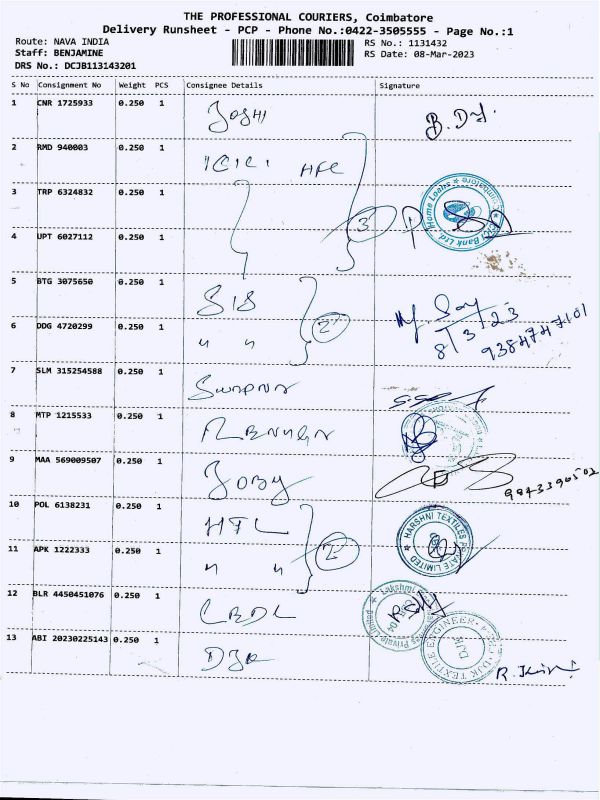 THE PROFESSIONAL COURIERS, Coimbatore
Delivery Runsheet - PCP - Phone No.:0422-3505555 - Page No.:1
Route: NAVA INDIA
RS No.: 1131432
Staff: BENJAMINE
RS Date: 08-Mar-2023
DRS No.: DCJB113143201
S No Consignment No Weight PCS Consignee Details Signature
1 CNR 1725933 0.250 1 JOSHI
2 RMD 940003 0.250 1 ICICI HFC
3 TRP 6324832 0.250 1 3 ICICI Bank Ltd. Home Loans
4 UPT 6027112 0.250 1
5 BTG 3075650 0.250 1 SIS
8/3/23
9384747101
6 DDG 4720299 0.250 1 " " 2
7 SLM 315254588 0.250 1
8 MTP 1215533 0.250 1
9 MAA 569009507 0.250 1
9843396502
10 POL 6138231 0.250 1 HTL HARSHNI TEXTILES PRIVATE LIMITED
11 APK 1222333 0.250 1 " " 2
12 BLR 4450451076 0.250 1
13 ABI 20230225143 0.250 1 DJK DJK TEXTILE ENGINEER